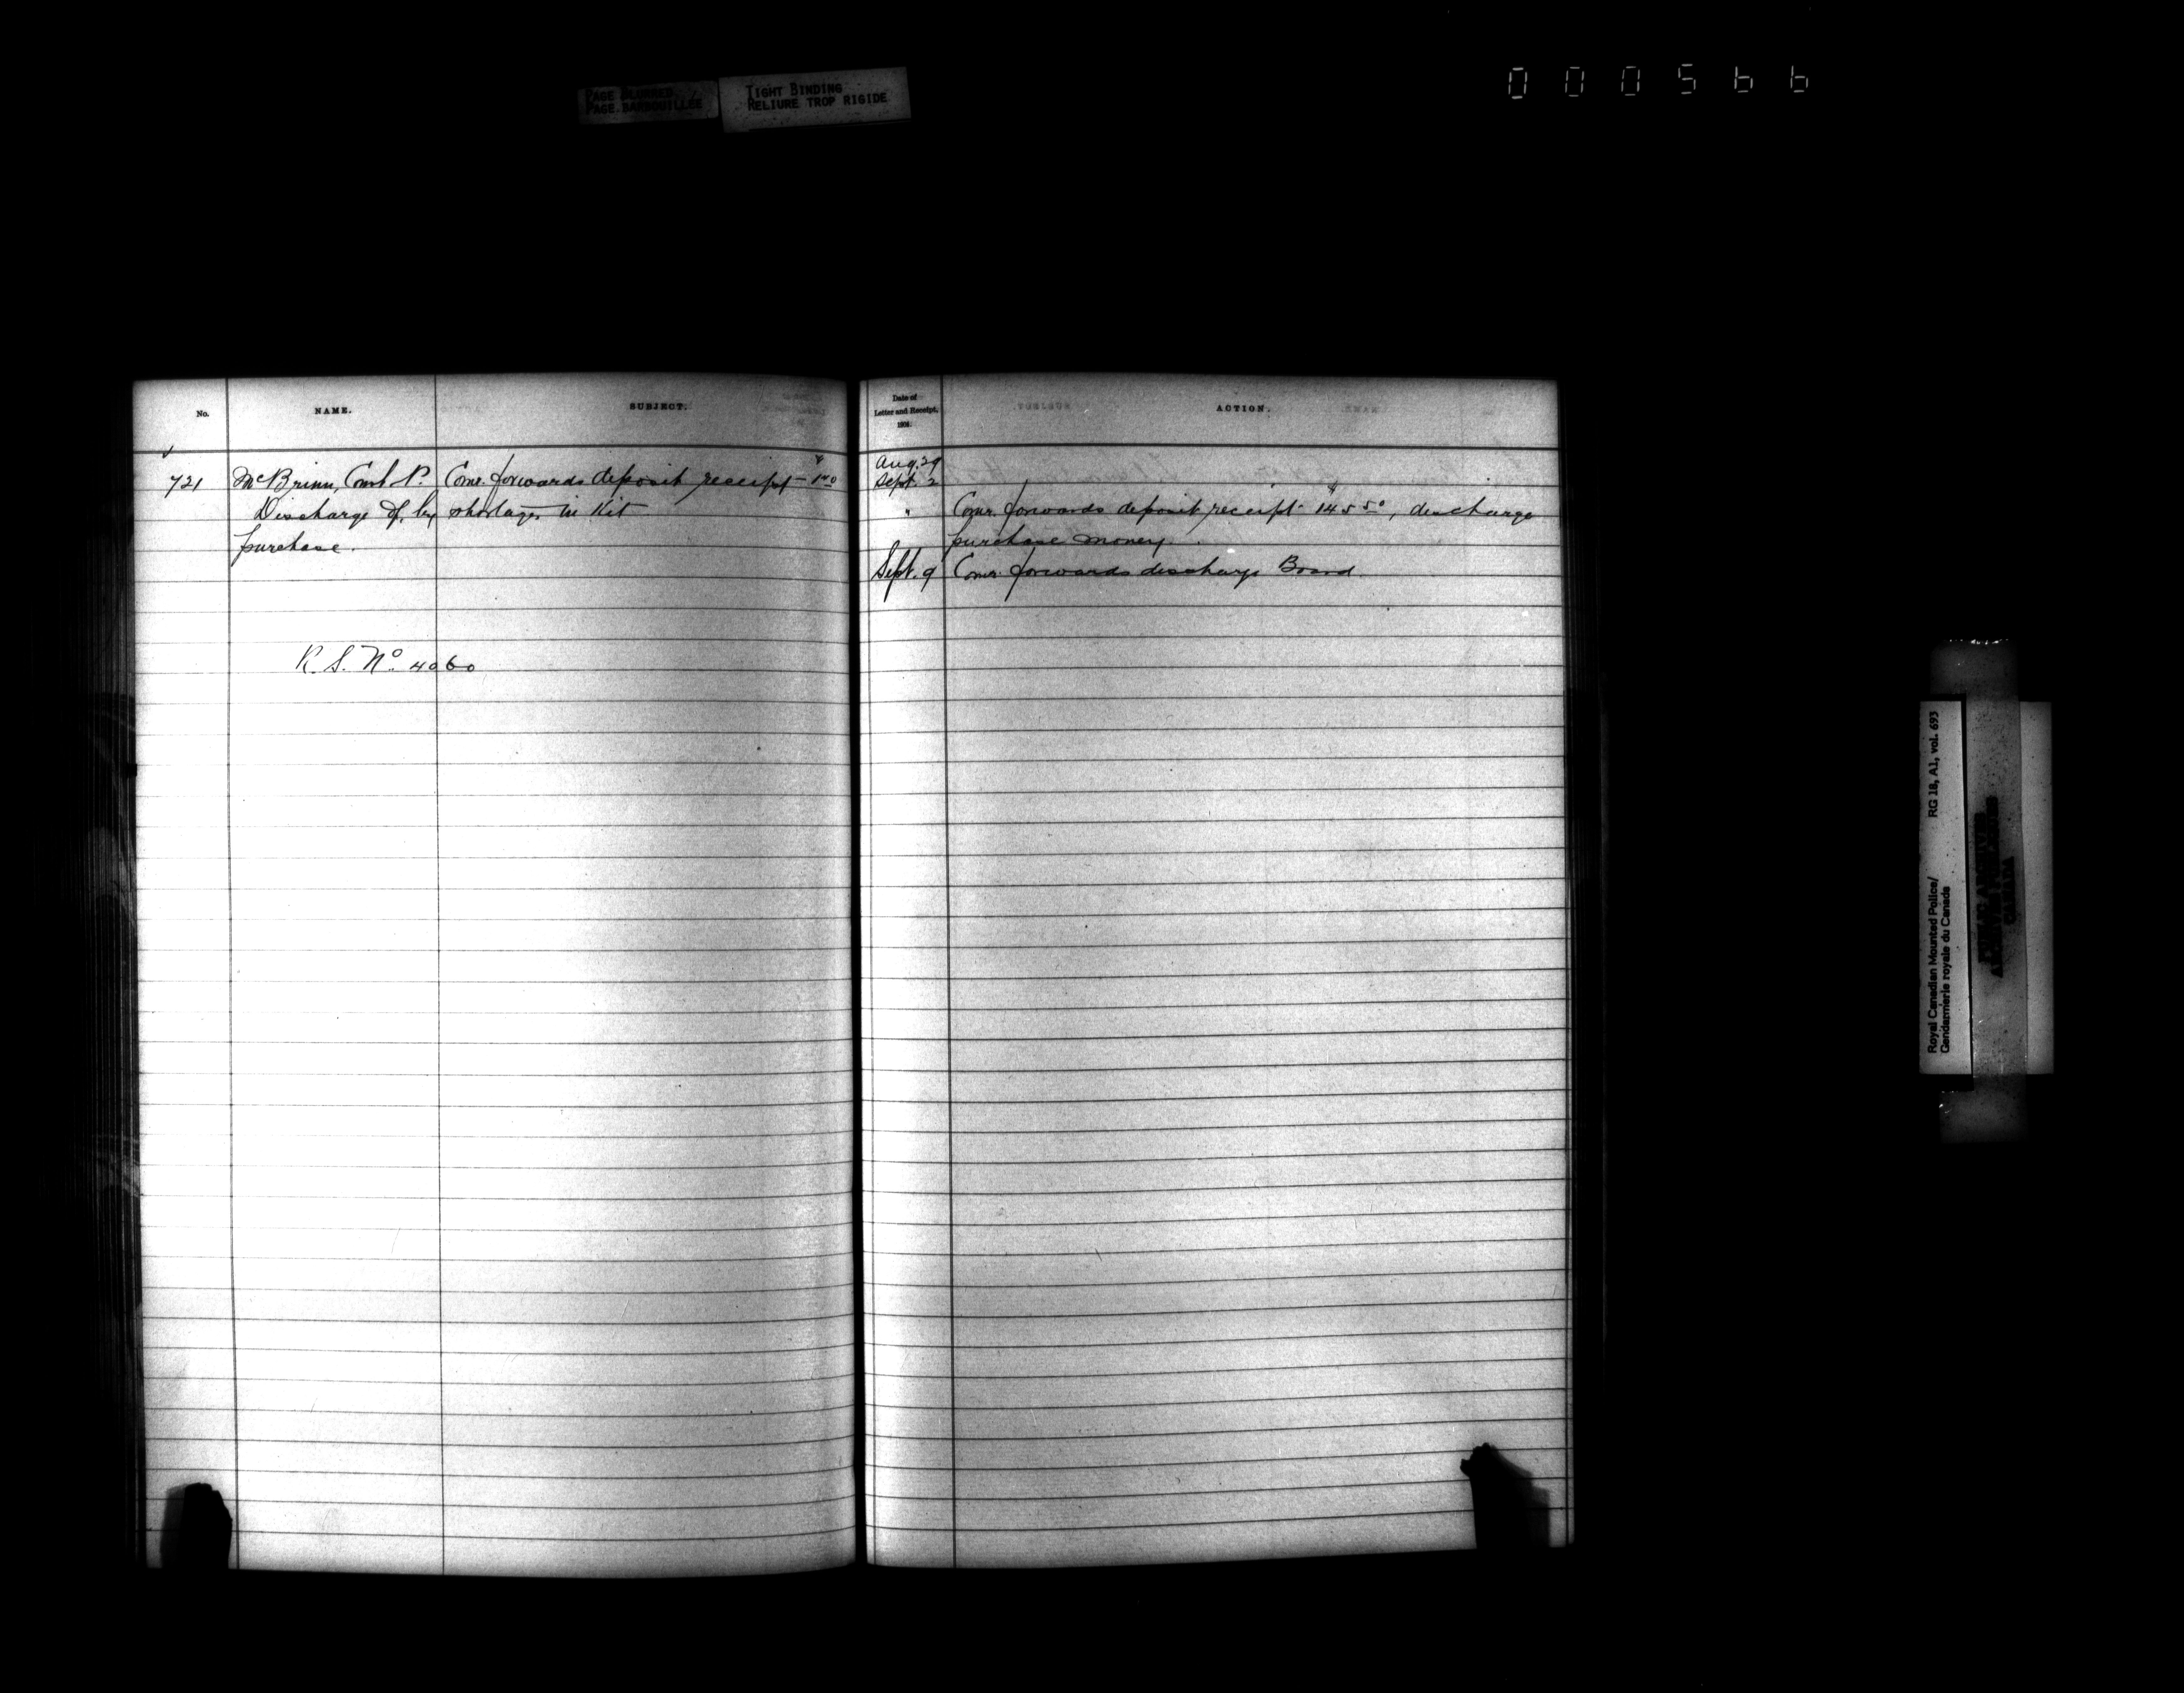 PAGE BLURRED
PAGE BARBOUILLÉE
TIGHT BINDING
RELIURE TROP RIGIDE
000566
No.
NAME.
SUBJECT.
721
McBrinn, Const. P.
Discharge of, by
purchase.
Comr. forwards deposit receipt - $1.40
shortages in Kit
R. S. No. 4060
Date of
Letter and Receipt,
1904.
ACTION.
Aug. 29
Sept. 2
" Comr. forwards deposit receipt - $145.50, discharge
purchase money.
Sept. 9 Comr. forwards discharge Board.
Royal Canadian Mounted Police/
Gendarmerie royale du Canada
RG 18, A1, vol. 693
PUBLIC ARCHIVES
ARCHIVES PUBLIQUES
CANADA